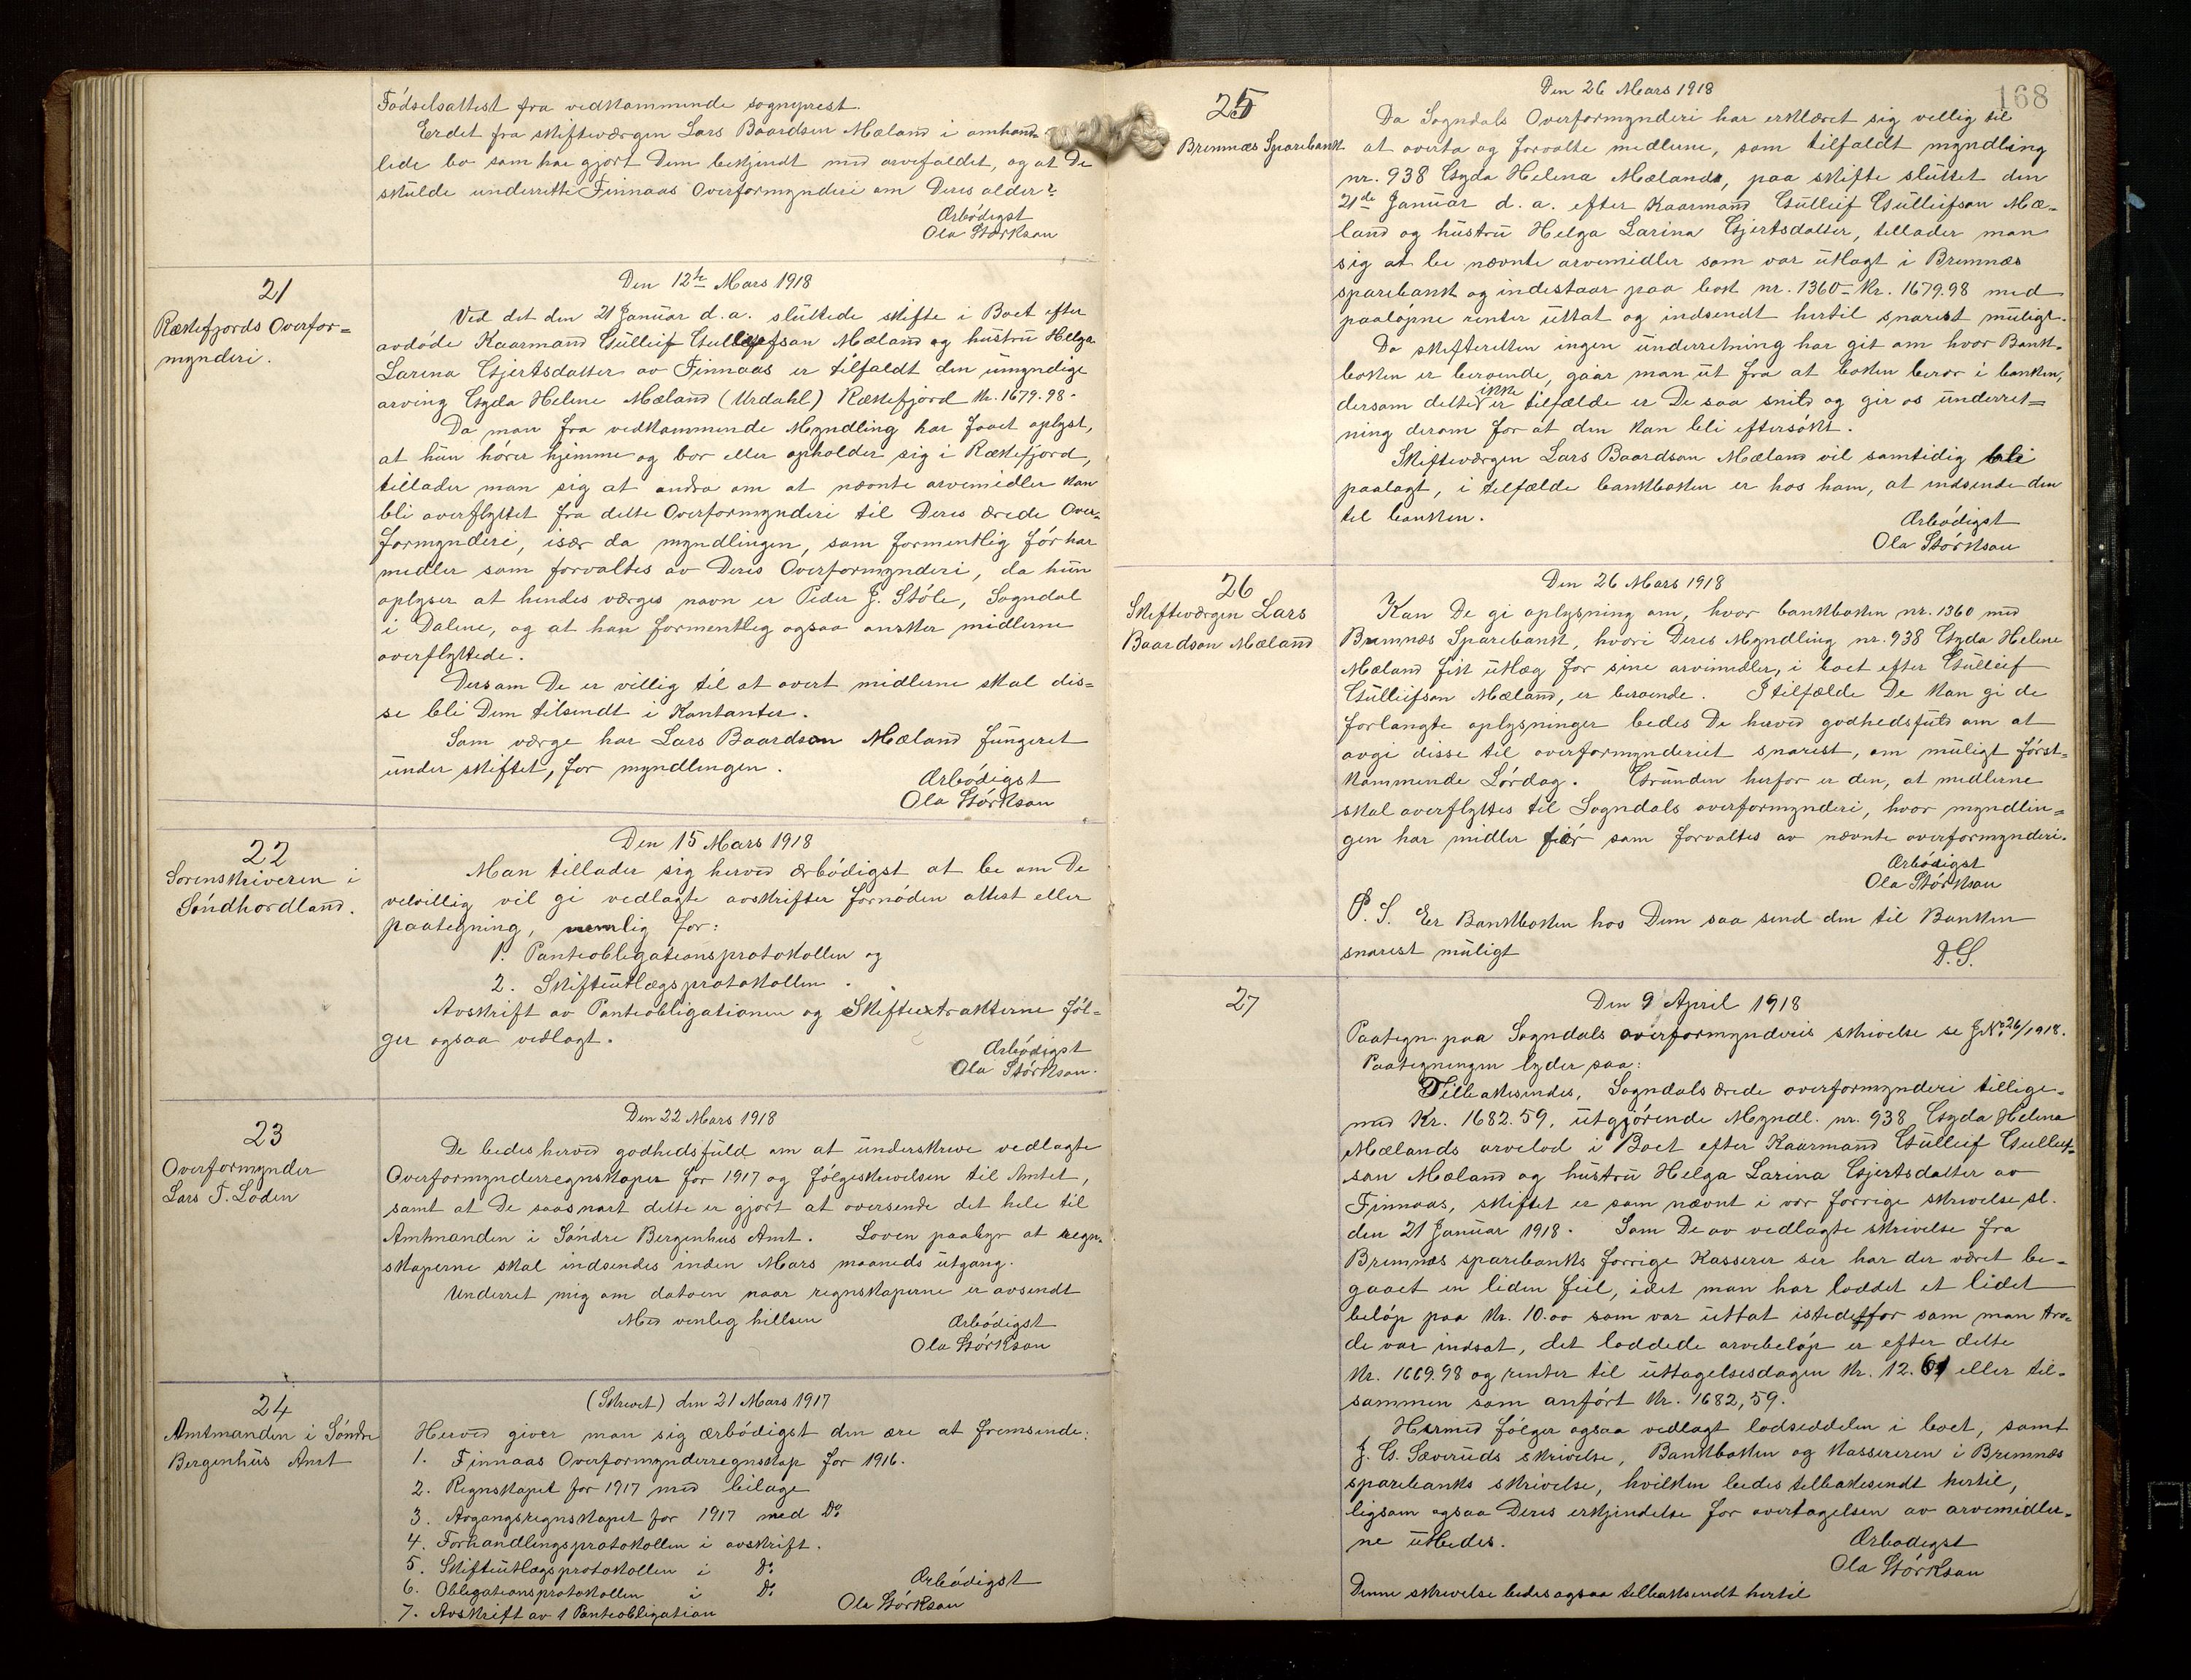 Fódselsattest fra vedkommende sogneprest.
Er det fra skifteværgen Lars Baardsen Mæland i omhand-
lede bo som har gjort Dem bekjendt med arvefaldet, og at De
skulde underrette Finnaas Overformynderi om Deres alder?
Ærbódigst
Ola Störkson
21
Rækefjords Overfor=
mynderi.
Den 12te Mars 1918
Ved det den 21 Januar d. a. sluttede skifte i Boet efter
avdóde Kaarmand Gulleif Gulleifson Mæland og hustru Helga
Larina Gjertsdatter av Finnaas er tilfaldt den umyndige
arving Gyda Helene Mæland (Urdahl) Rækefjord Kr. 1679.98.
Da man fra vedkommende Myndling har faaet oplyst,
at hun hórer hjemme og bor eller opholder sig i Rækefjord,
tillader man sig at andra om at nævnte arvemidler kan
bli overflyttet fra dette Overformynderi til Deres ærede Over-
formynderi, især da myndlingen, som formentlig fór har
midler som forvaltes av Deres Overformynderi, da hun
oplyser at hendes værges navn er Peder J. Stóle, Sogndal
i Dalene, og at han formentleg ogsaa ønsker midlerne
overflyttede.
Dersom De er villig til at overt midlerne skal dis=
se bli Dem tilsendt i Kontanter.
Som værge har Lars Baardson Mæland fungeret
under skiftet, for myndlingen.
Ærbódigst
Ola Störkson
22
Sorenskriveren i
Sóndhordland.
Den 15 Mars 1918
Man tillader sig herved ærbódigst at be om De
velvillig vil gi vedlagte avskrifter fornóden attest eller
paategning, nemlig for:
1. Panteobligationsprotokollen og
2. Skifteutlægsprotokollen.
Avskrift av Panteobligationen og Skifteextrakterne fól=
ger ogsaa vedlagt.
Ærbódigst
Ola Störkson.
23
Overformynder
Lars T. Loden
Den 22 Mars 1918
De bedes herved godhedsfuld om at underskrive vedlagte
Overformynderregnskaper for 1917 og fólgeskrivelsen til Amtet,
samt at De saasnart dette er gjort at oversende det hele til
Amtmanden i Sóndre Bergenhus Amt. Loven paabyr at regn-
skaperne skal indsendes inden Mars maaneds utgang.
Underret mig om datoen naar regnskaperne er avsendt
Med venleg hillsen
Ærbódigst
Ola Störkson
24
Amtmanden i Sóndre
Bergenhus Amt
(Skrevet) den 21 Mars 1917
Herved giver man sig ærbódigst den ære at fremsende:
1. Finnaas Overformynderregnskap for 1916.
2. Regnskapet for 1917 med bilage
3. Avgangsregnskapet for 1917 med Do
4. Forhandlingsprotokollen i avskrift.
5. Skifteutlægsprotokollen i Do
6. Obligationsprotokollen i Do
7. Avskrift av 1 Panteobligation
Ærbódigst
Ola Störkson
168
25
Bremnæs Sparebank
Den 26 Mars 1918
Da Sogndals Overformynderi har erklæret sig vellig til
at overta og forvalte midlerne, som tilfaldt myndling
nr. 938 Gyda Helena Mælands, paa skifte sluttet den
21de Januar d. a. efter Kaarmand Gulleif Gulleifson Mæ-
land og hustru Helga Larina Gjertsdatter, tillader man
sig at be nævnte arvemidler som var utlagt i Bremnæs
sparebank og indestaar paa bok nr. 1360 - Kr. 1679.98 med
paalópne renter uttat og indsendt hertil snarest muligt.
Da skifteretten ingen underretning har git om hvor Bank-
boken er beroende, gaar man ut fra at boken beror i banken,
dersom dette ikke er tilfælde er De saa snild og gir os underret=
ning derom for at den kan bli eftersókt.
Skifteværgen Lars Baardson Mæland vil samtidig bli
paalagt, i tilfælde bankboken er hos ham, at indsende den
til banken.
Ærbódigst
Ola Störkson
26
Skifteværgen Lars
Baardson Mæland
Den 26 Mars 1918
Kan De gi oplysning om, hvor bankboken nr. 1360 med
Bremnæs Sparebank, hvori Deres Myndling nr. 938 Gyda Helene
Mæland fik utlæg for sine arvemidler, i boet efter Gulleif
Gulleifson Mæland, er beroende. I tilfælde De kan gi de
forlangte oplysninger bedes De herved godhedsfuld om at
avgi disse til overformynderiet snarest, om muligt fórst=
kommende Lórdag. Grunden herfor er den, at midlerne
skal overflyttes til Sogndals overformynderi, hvor myndlin=
gen har midler fór som forvaltes av nævnte overformynderi.
Ærbódigst
Ola Störkson
P. S. Er Bankboken hos Dem saa send den til Banken
snarest muligt
D. S.
27
Den 9 April 1918
Paategn. paa Sogndals overformynderis skrivelse se J No 26/1918.
Paategningen lyder saa:
Tilbakesendes, Sogndals ærede overformynderi tillige-
med Kr. 1682.59, utgjórende Myndl. nr. 938 Gyda Helena
Mælands arvelod i Boet efter Kaarmand Gulleif Gulleif-
son Mæland og hustru Helga Larina Gjertsdatter av
Finnaas, skiftet er som nævnt i vor forrige skrivelse sl.
den 21 Januar 1918. Som De av vedlagte skrivelse fra
Bremnæs sparebanks forrige Kasserer ser har der været be-
gaaet en liden feil, idet man har loddet et lidet
belóp paa Kr. 10.00 som var uttat istedetfor som man tro-
de var indsat, det loddede arvebelóp er efter dette
Kr. 1669.98 og renter til uttagelsesdagen Kr. 12.61 eller til-
sammen som anfórt Kr. 1682,59.
Hermed fólger ogsaa vedlagt lodseddelen i boet, samt
J. G. Sæveruds skrivelse, Bankboken og Kassereren i Bremnæs
sparebanks skrivelse, hvilken bedes tilbakesendt hertil,
ligsom ogsaa Deres erkjendelse for overtagelsen av arvemidler-
ne utbedes.
Ærbodigst
Ola Störkson
Denne skrivelse bedes ogsaa tilbaksendt hertil